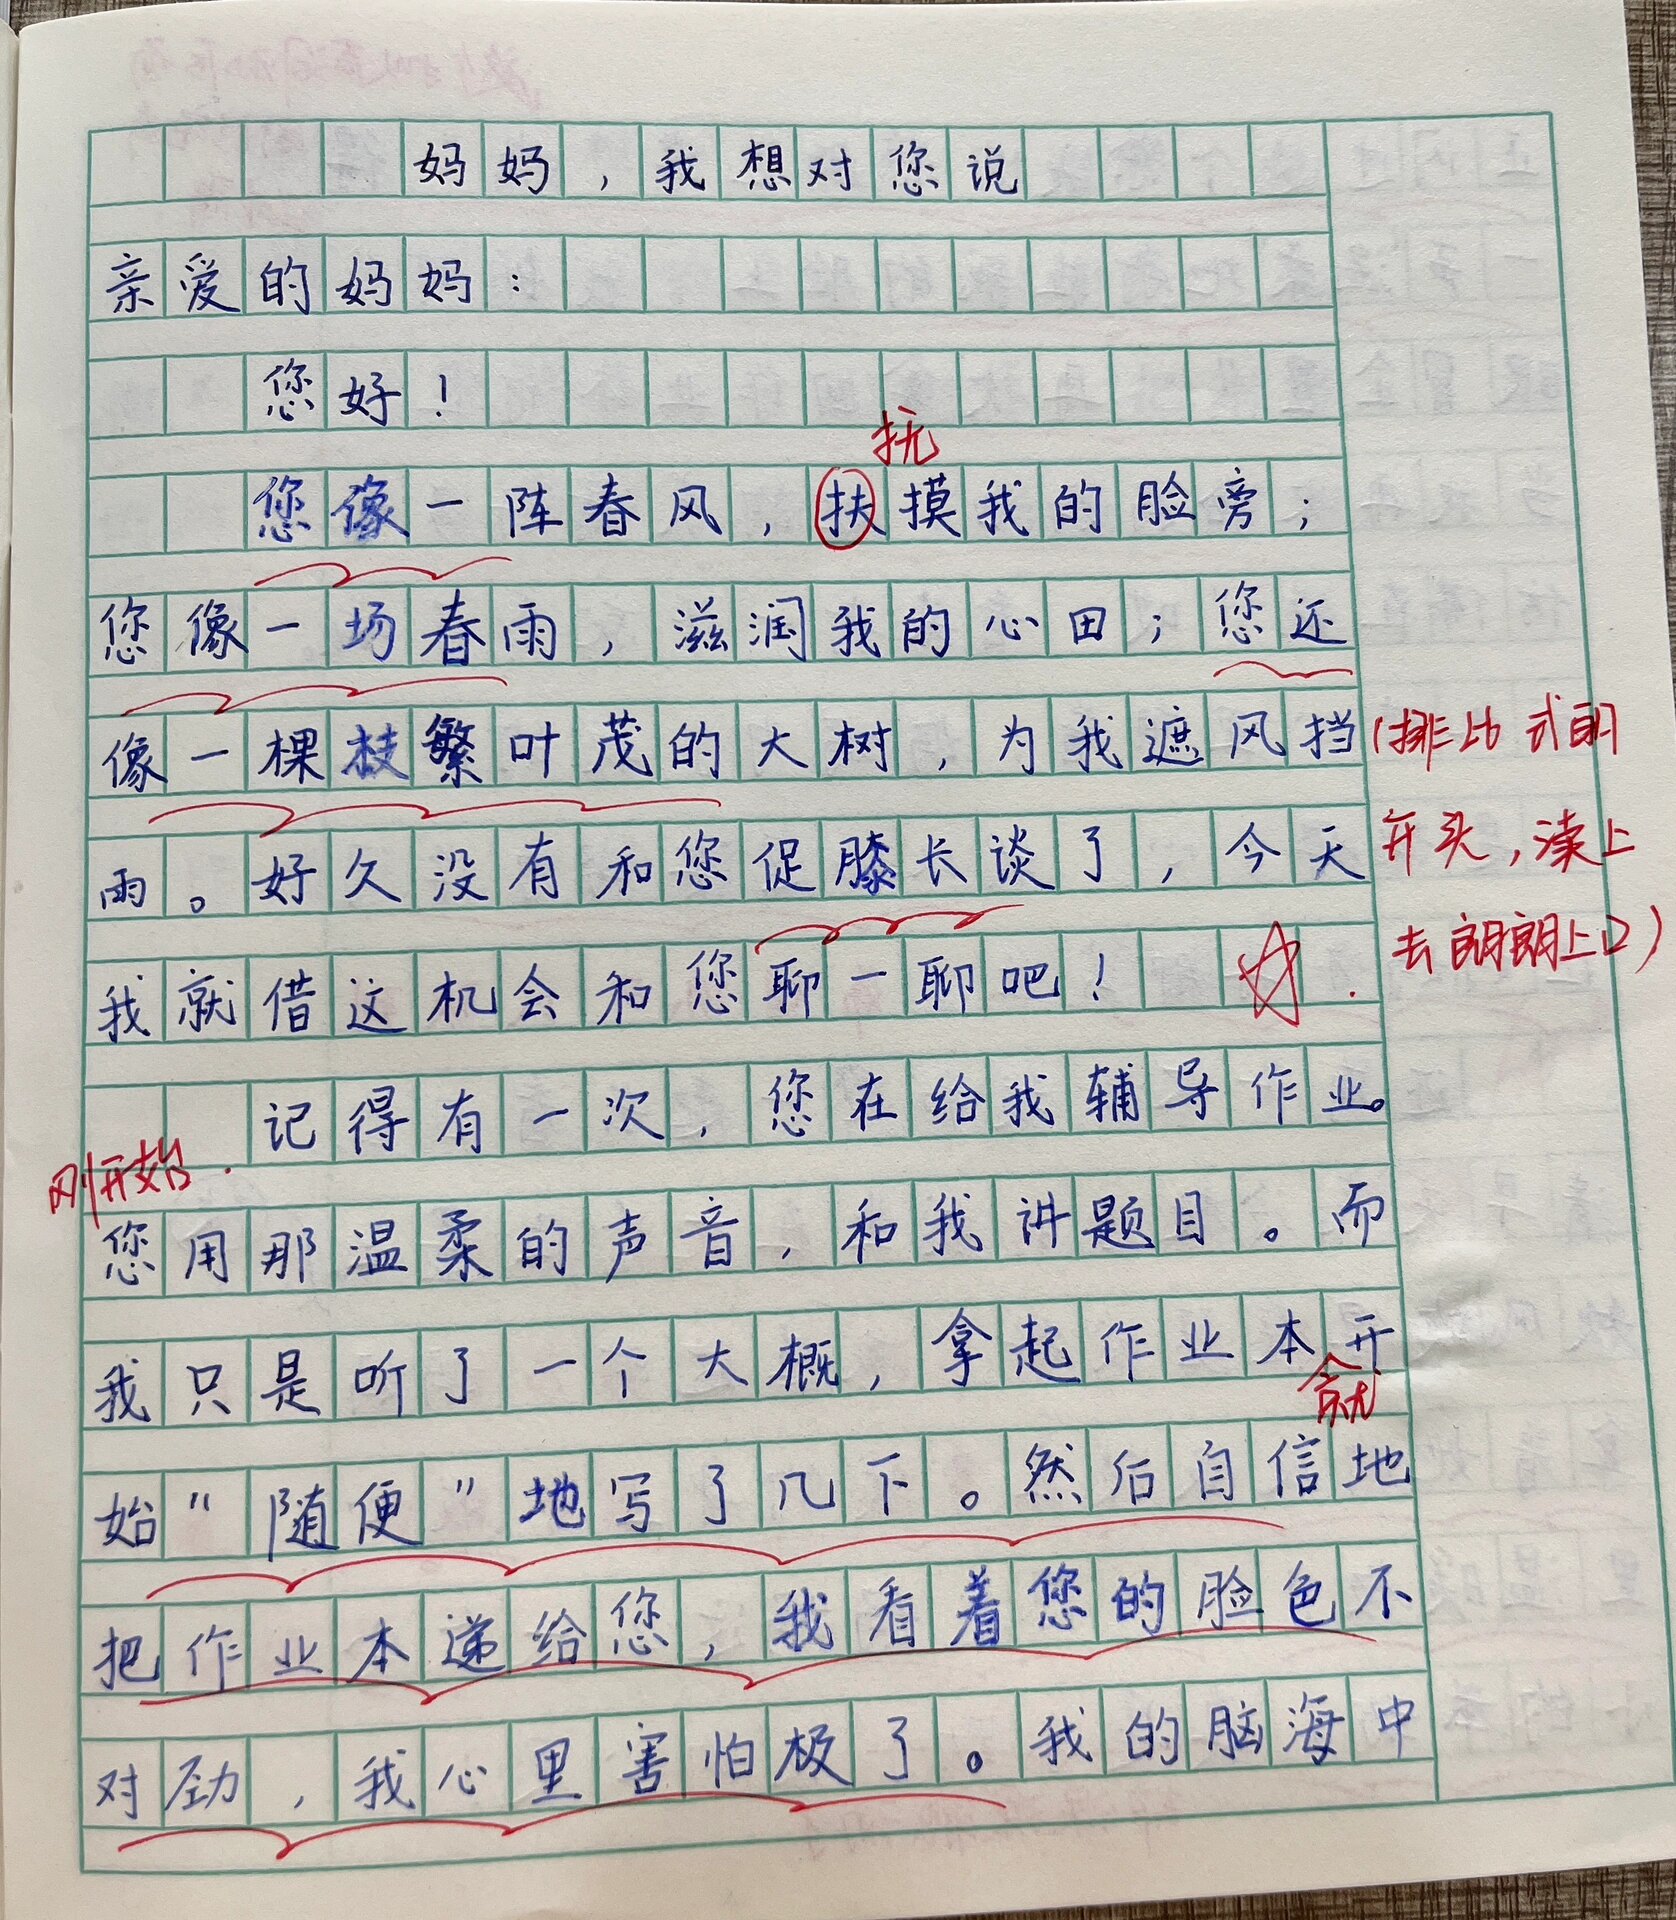 妈妈，我想对您说
亲爱的妈妈：
您好！
抚
您像一阵春风，扶摸我的脸旁；
您像一场春雨，滋润我的心田；您还
像一棵枝繁叶茂的大树，为我遮风挡
雨。好久没有和您促膝长谈了，今天
我就借这机会和您聊一聊吧！
(排比式的
开头，读上
去朗朗上口)
记得有一次，您在给我辅导作业。
刚开始
您用那温柔的声音，和我讲题目。而
我只是听了一个大概，拿起作业本开
就
始"随便"地写了几下。然后自信地
把作业本递给您，我看着您的脸色不
对劲，我心里害怕极了。我的脑海中